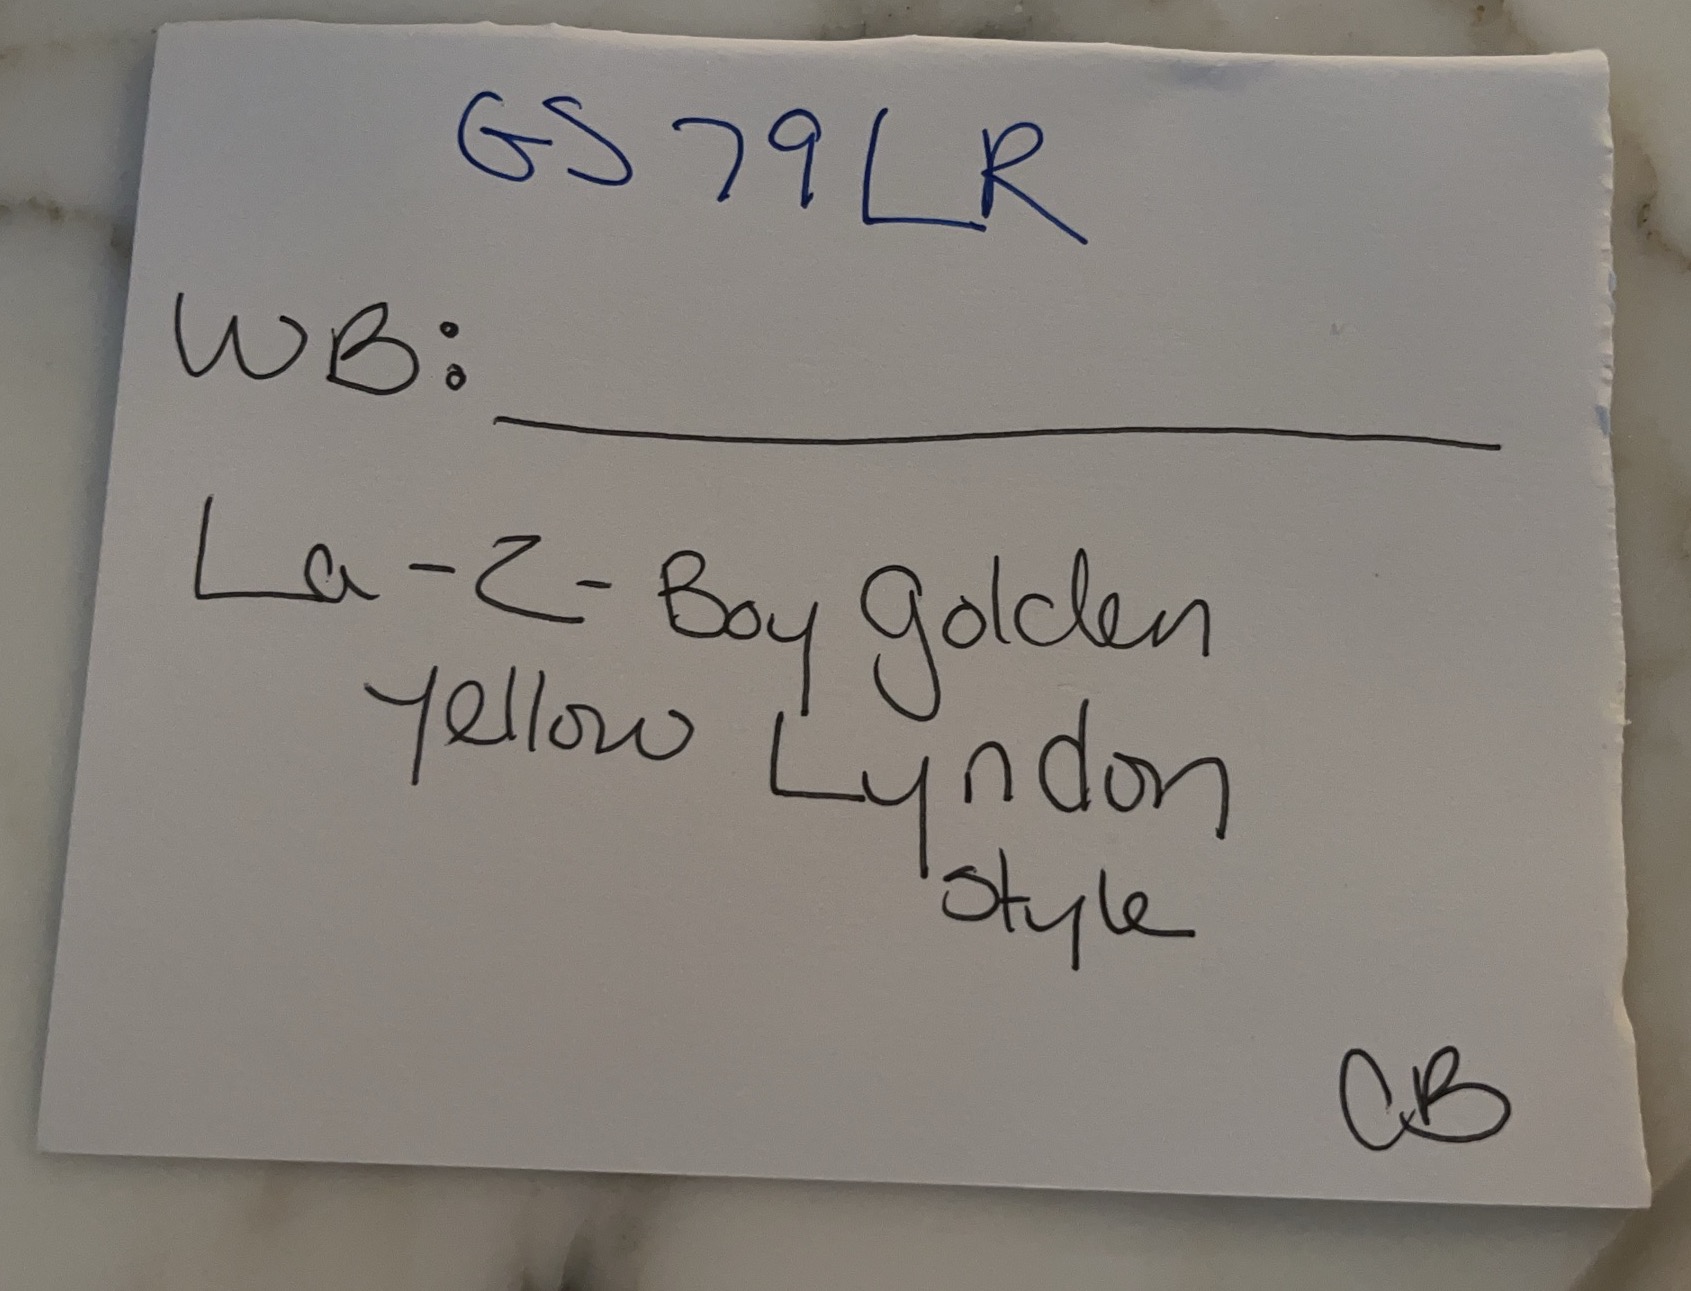 GS79LR
WB: 
La-Z-Boy golden
yellow Lyndon
style
CB